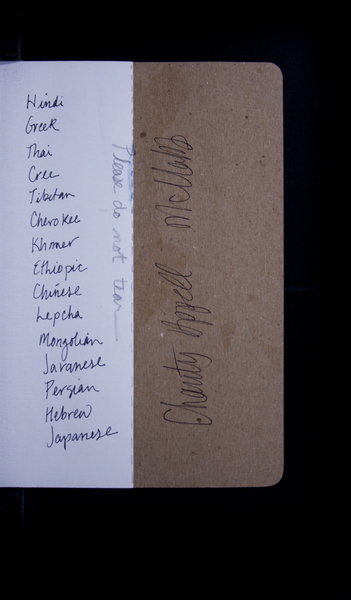 Hindi
Greek
Thai
Cree
Tibetan
Cherokee
Khmer
Ethiopic
Chinese
Lepcha
Mongolian
Javanese
Persian
Hebrew
Japanese
Please do not tear
Charity